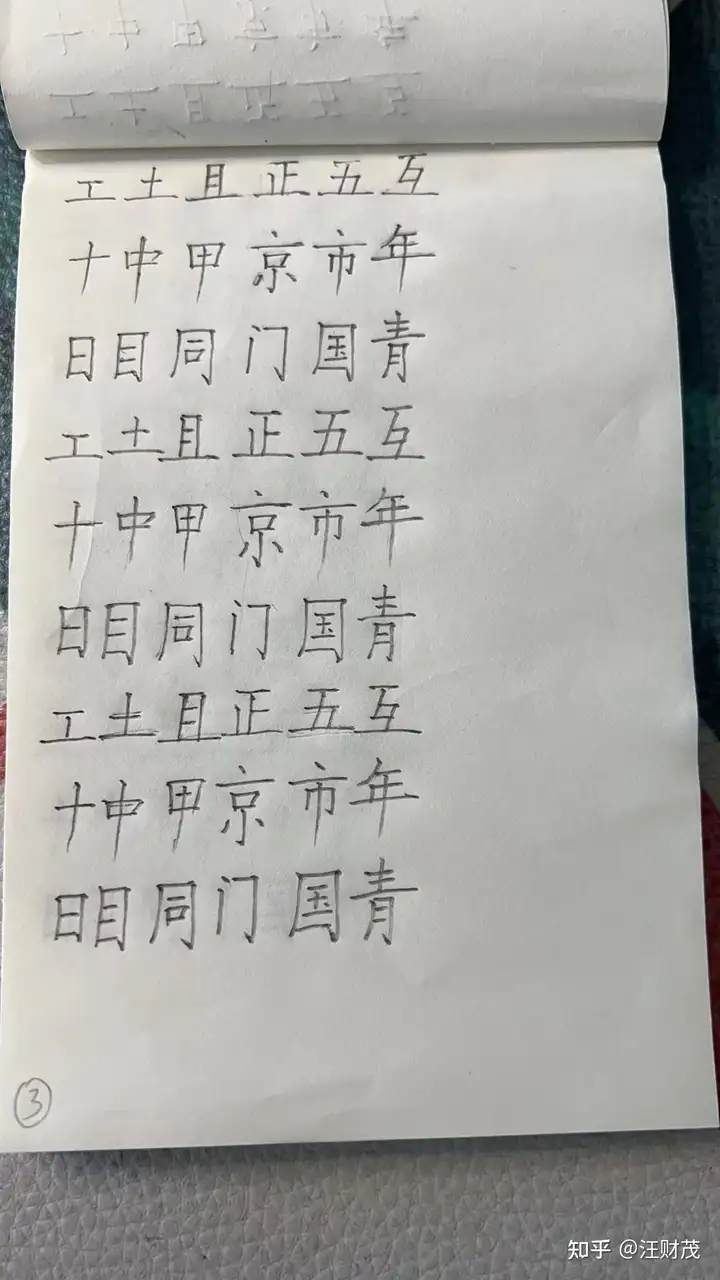 工土且正五互
十中甲京市年
日目同门国青
工土且正五互
十中甲京市年
日目同门国青
工土且正五互
十中甲京市年
日目同门国青
③
知乎 @汪财茂